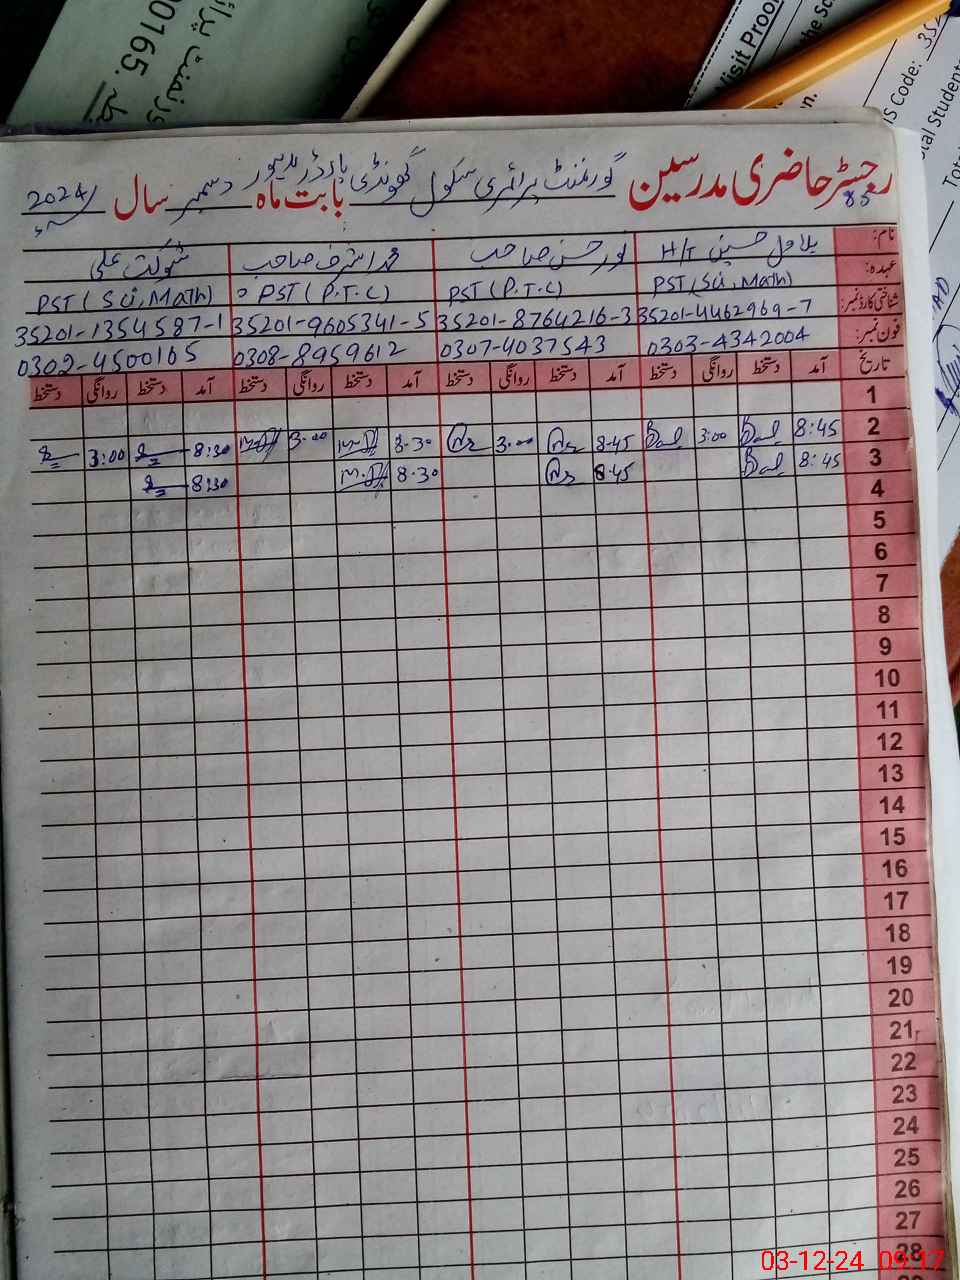 رجسٹر حاضری مدرسین گورنمنٹ پرائمری سکول گھونڈی بارڈر
بابت ماہ دسمبر سال 2024ء
85
نام: بلاول حسین H/T نور حسن صاحب محمد اشرف صاحب شوکت علی
عہدہ: PST(Sci, Math) PST(P.T.C) PST(P.T.C) PST(Sci, Math)
شناختی کارڈ نمبر: 35201-4462969-7 35201-8764216-3 35201-9605341-5 35201-1354587-1
فون نمبر: 0303-4342004 0307-4037543 0308-8959612 0302-4500165
تاریخ آمد دستخط روانگی دستخط آمد دستخط روانگی دستخط آمد دستخط روانگی دستخط آمد دستخط روانگی دستخط
1
2 8:45 Bal 3:00 Bal 8.45 3.00 8.30 3.00 8:30 3:00
3 8:45 Bal 8.45 8.30 8:30
4
5
6
7
8
9
10
11
12
13
14
15
16
17
18
19
20
21
22
23
24
25
26
27
28
00165.
Visit Proof
the sc
IS Code: 352
tal Student
Tot
03-12-24 09:17